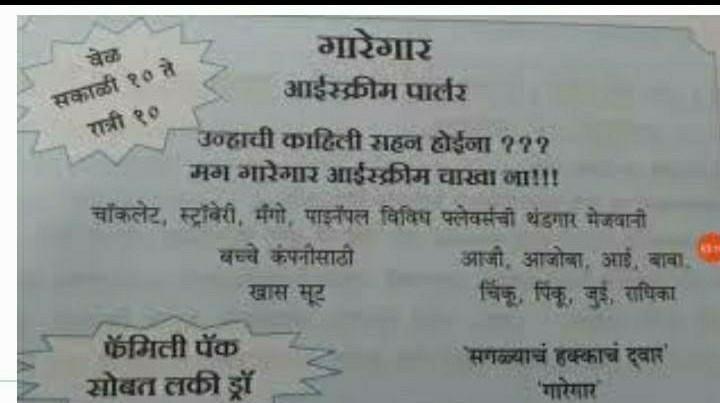 वेळ
सकाळी १० ते
रात्री १०
गारेगार
आईस्क्रीम पार्लर
उन्हाची काहिली सहन होईना ???
मग गारेगार आईस्क्रीम चाखा ना!!!
चॉकलेट, स्ट्रॉबेरी, मँगो, पाइनॅपल विविध फ्लेवर्सची थंडगार मेजवानी
बच्चे कंपनीसाठी
खास सूट
आजी, आजोबा, आई, बाबा,
चिंकू, पिंकू, जुई, राधिका
फॅमिली पॅक
सोबत लकी ड्रॉ
'सगळ्याचं हक्काचं द्वार'
'गारेगार'